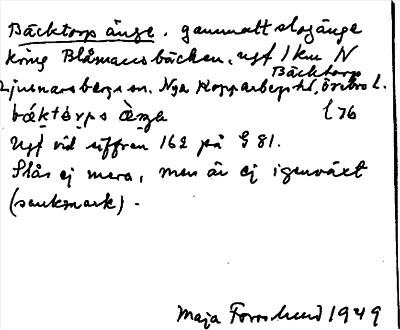 Bäcktorps änge. gammalt slogänge
kring Blåmansbäcken, ugf 1 km N
Bäcktorp
Ljusnarsbergs sn. Nya Kopparbergs hd, Örebro l.
báktórps ä̀ŋə l 76
Ugf vid siffran 162 på G 81.
Slås ej mera, men är ej igenväxt
(sankmark) -
Maja Forsslund 1949